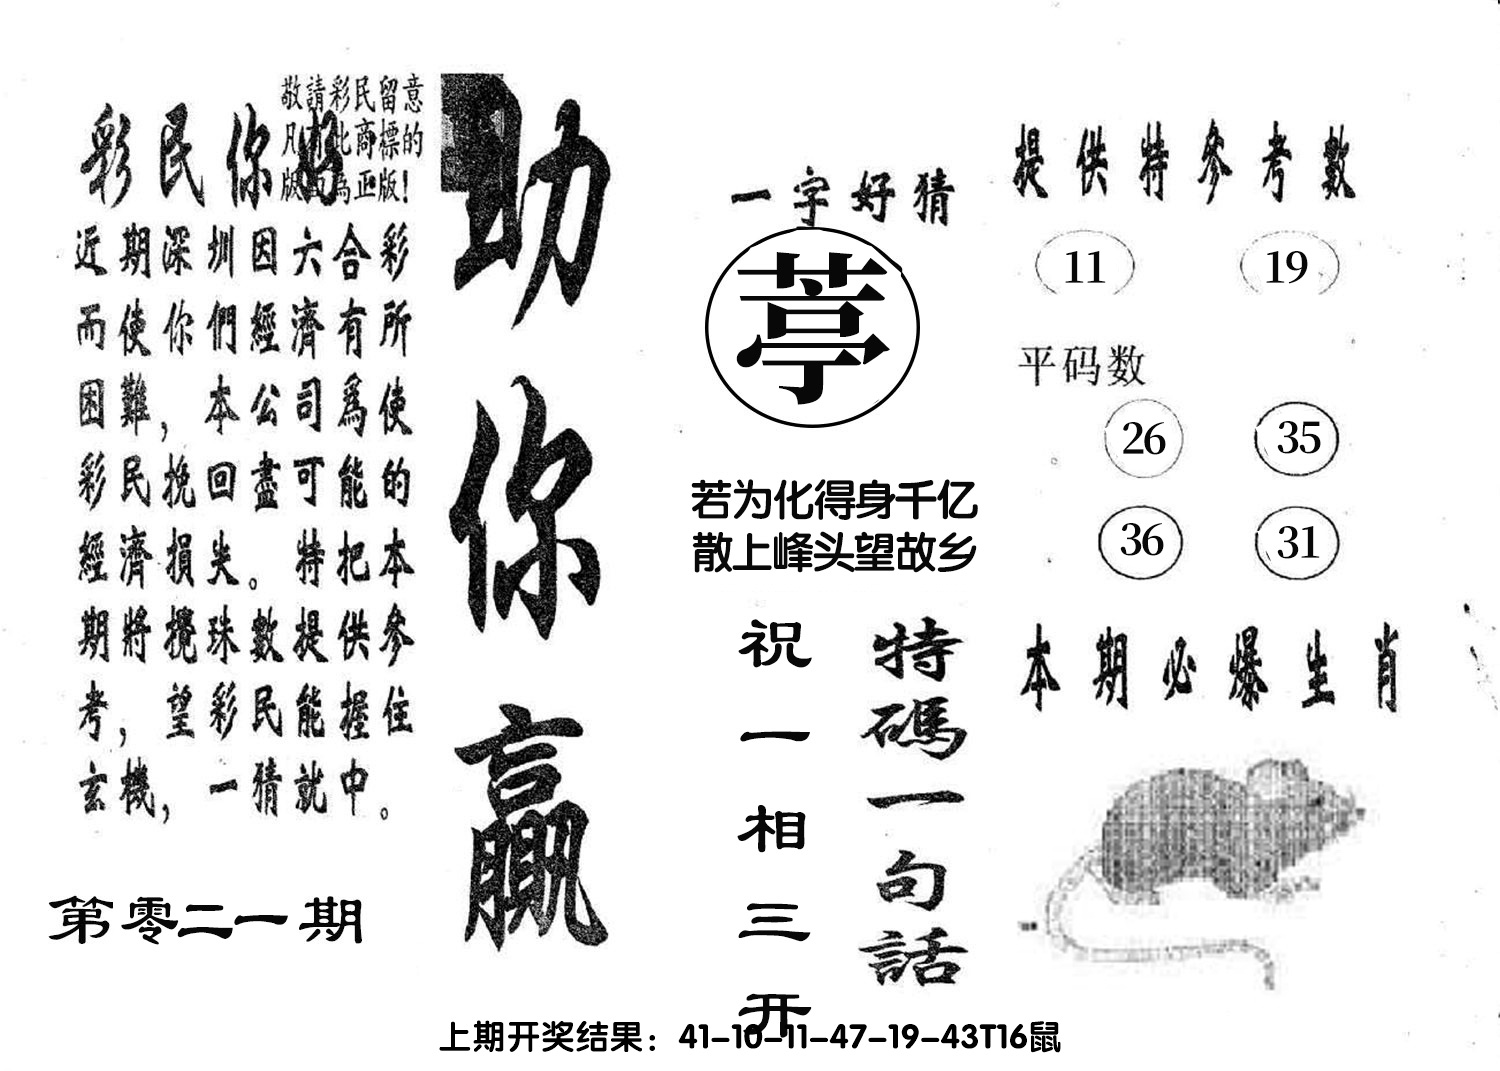 敬請彩民留意
凡有此商標的
版面為正版！
彩民你好
近期深圳因六合彩
而使你們經濟有所
困難，本公司爲使
彩民挽回盡可能的
經濟損失。特把本
期將攪珠數提供參
考，望彩民能握住
玄機，一猜就中。
第零二一期
助你贏
一字好猜
葶
若为化得身千亿
散上峰头望故乡
特碼一句話
祝一相三开
提供特參考數
11 19
平码数
26 35
36 31
本期必爆生肖
上期开奖结果：41-10-11-47-19-43T16鼠